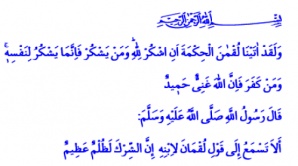 بِسْمِ اللّٰهِ الرَّحْمٰنِ الرَّحِيمِ
وَلَقَدْ اٰتَيْنَا لُقْمٰنَ الْحِكْمَةَ اَنِ اشْكُرْ لِلّٰهِۜ وَمَنْ يَشْكُرْ فَاِنَّمَا يَشْكُرُ لِنَفْسِه۪ۚ
وَمَنْ كَفَرَ فَاِنَّ اللّٰهَ غَنِيٌّ حَم۪يدٌ
قَالَ رَسُولُ اللّٰهِ صَلَّى اللّٰهُ عَلَيْهِ وَسَلَّمَ:
أَلَا تَسْمَعُ إِلَى قَوْلِ لُقْمَانَ لِابْنِهِ إِنَّ الشِّرْكَ لَظُلْمٌ عَظِيمٌ